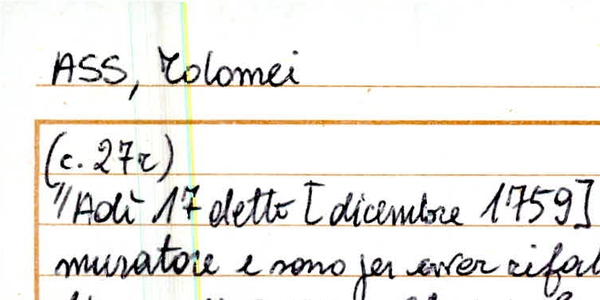 ASS, Tolomei
(c. 27r)
"Adì 17 detto [dicembre 1759]
muratore e sono per aver rifat